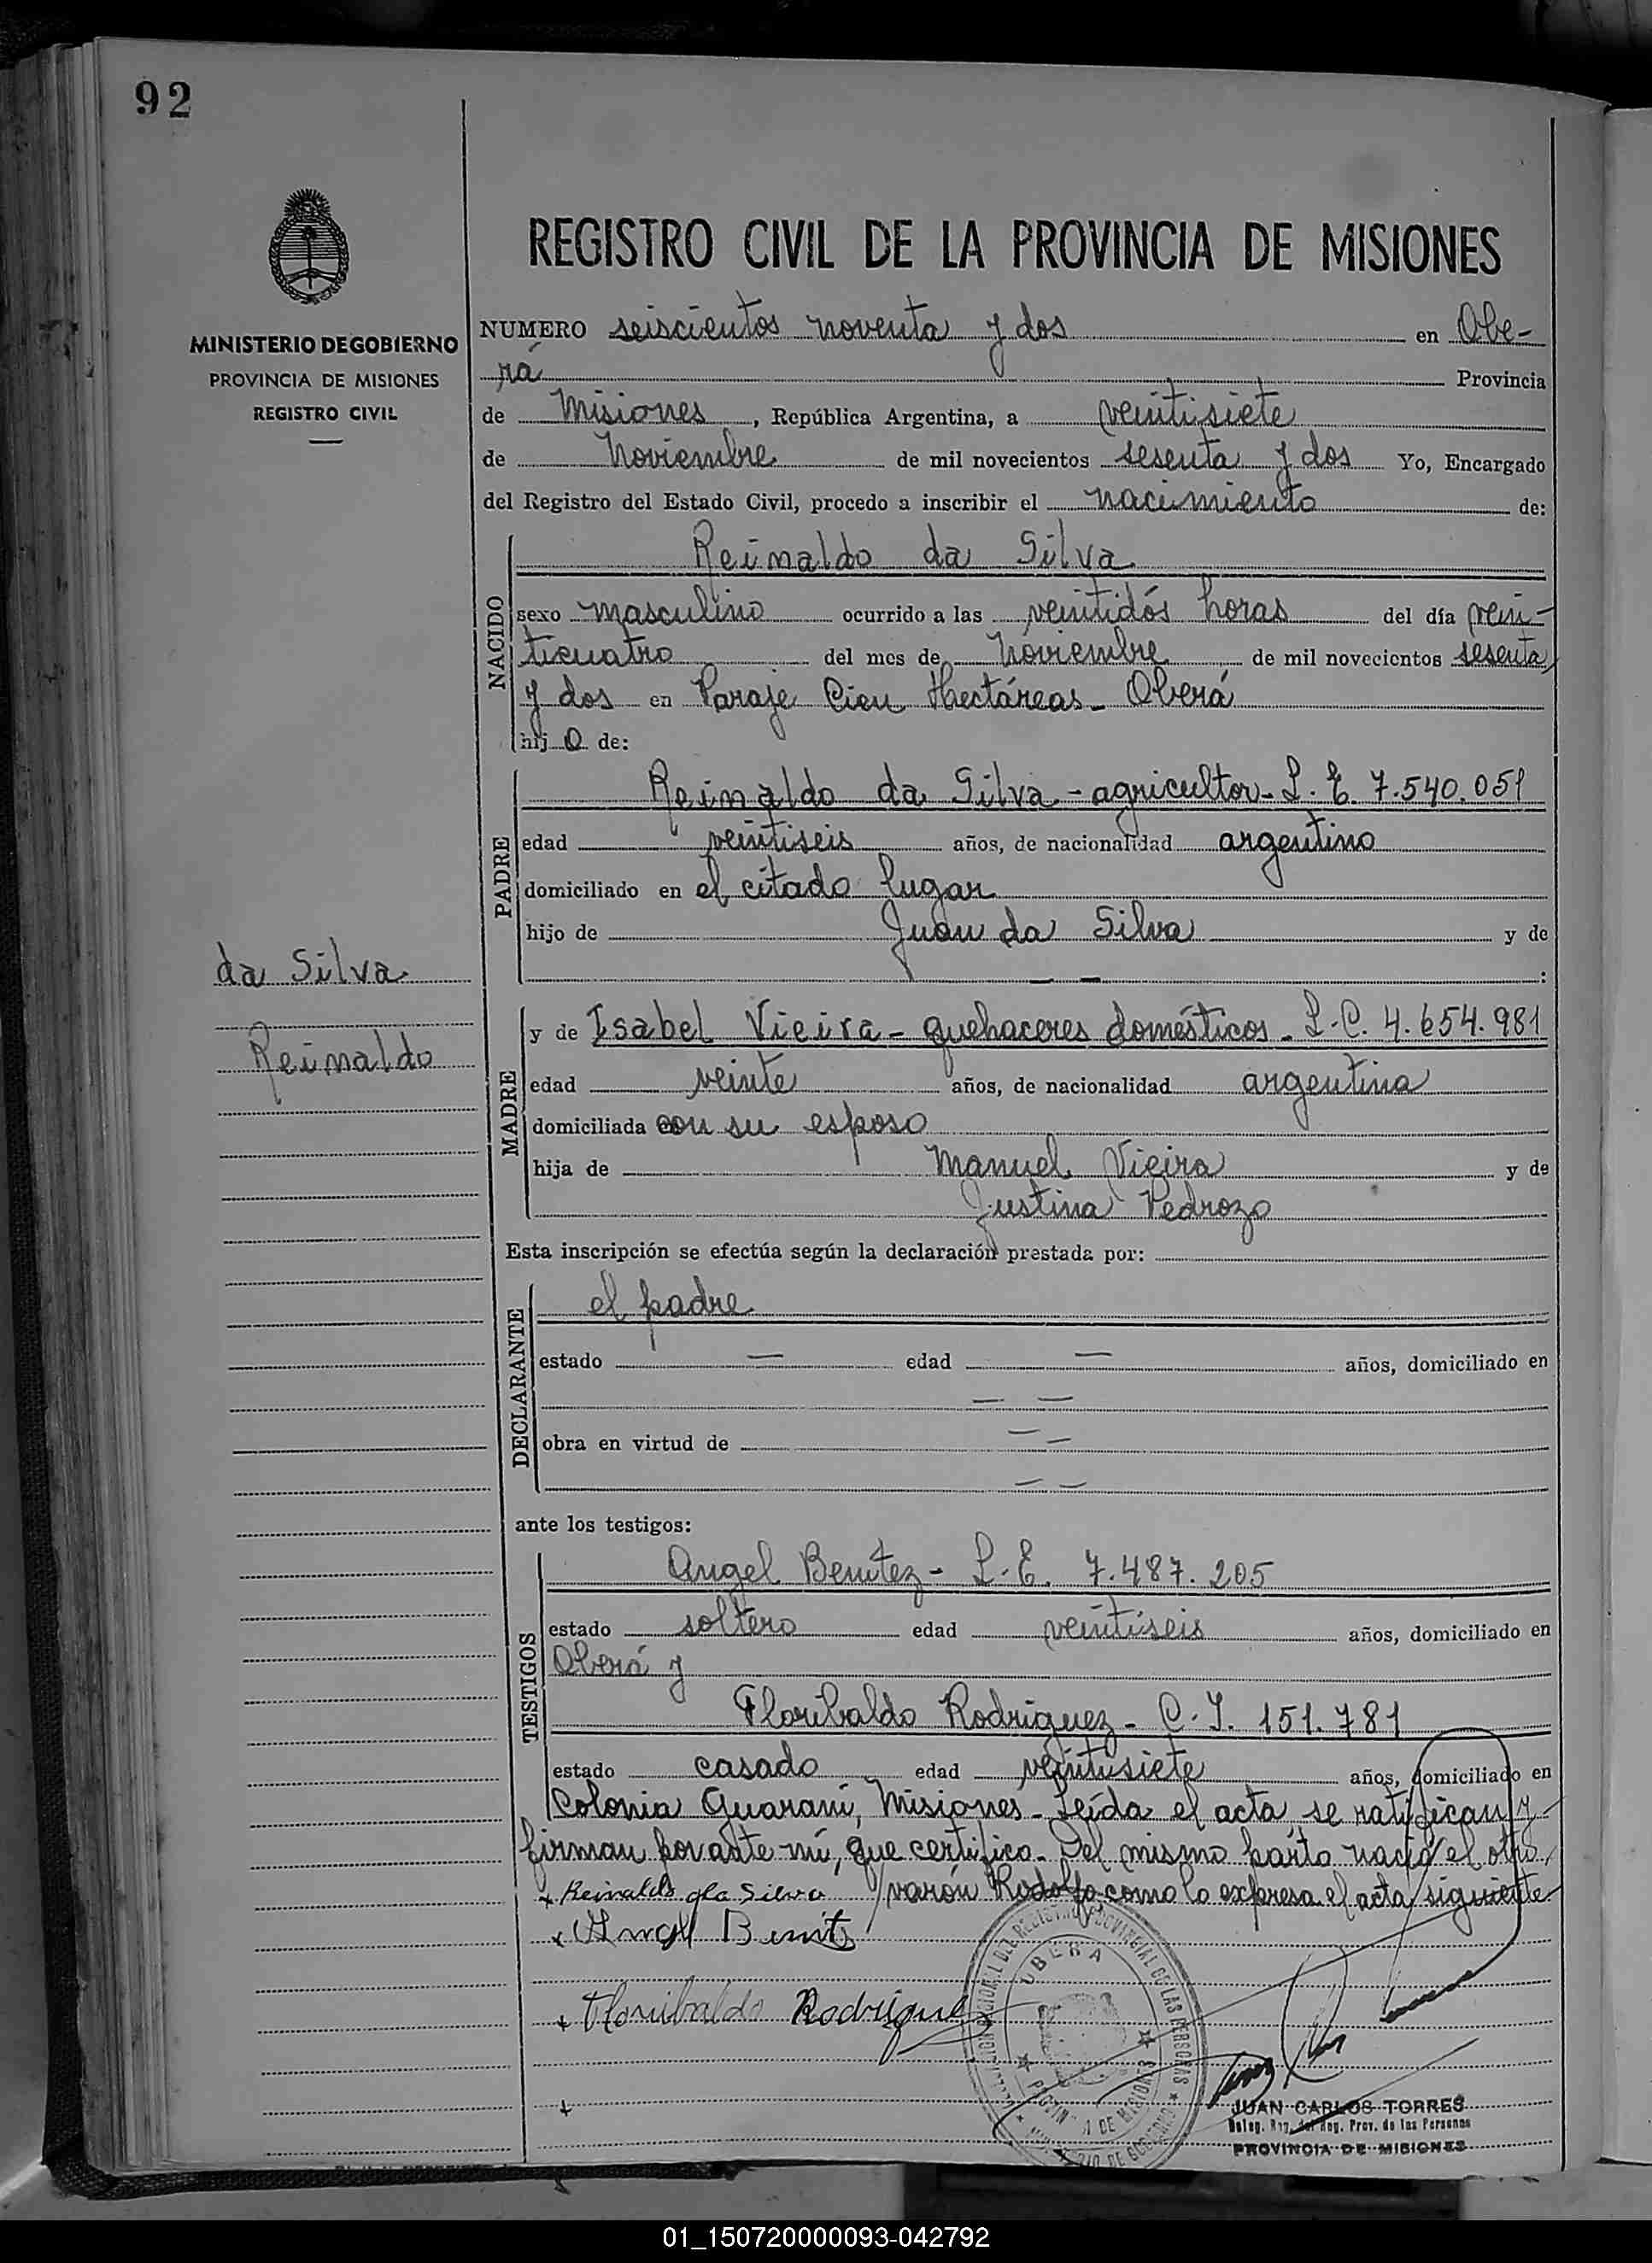 92
MINISTERIO DE GOBIERNO
PROVINCIA DE MISIONES
REGISTRO CIVIL
da Silva
Reinaldo
REGISTRO CIVIL DE LA PROVINCIA DE MISIONES
NUMERO seiscientos noventa y dos en Obe-
rá Provincia
de Misiones, República Argentina, a veintisiete
de Noviembre de mil novecientos sesenta y dos Yo, Encargado
del Registro del Estado Civil, procedo a inscribir el nacimiento de:
NACIDO
Reinaldo da Silva
sexo masculino ocurrido a las veintidós horas del día vein-
ticuatro del mes de Noviembre de mil novecientos sesenta
y dos en Paraje Cien Hectáreas - Oberá
hij o de:
PADRE
Reinaldo da Silva - agricultor - L. E. 7.540.051
edad veintiseis años, de nacionalidad argentino
domiciliado en el citado lugar
hijo de Juan da Silva y de
— — :
MADRE
y de Isabel Vieira - quehaceres domésticos - L.C. 4.654.981
edad veinte años, de nacionalidad argentina
domiciliada con su esposo
hija de Manuel Vieira y de
Justina Pedrozo
Esta inscripción se efectúa según la declaración prestada por:
DECLARANTE
el padre
estado — edad — años, domiciliado en
— —
obra en virtud de — —
— —
ante los testigos:
TESTIGOS
Angel Benítez - L.E. 7.487.205
estado soltero edad veintiseis años, domiciliado en
Oberá y
Floribaldo Rodriguez - C.I. 151.781
estado casado edad veintisiete años, domiciliado en
Colonia Guaraní, Misiones - Leída el acta, se ratifican y
firman por ante mí, que certifico - Del mismo parto nació el otro
x Reinaldo da Silva / varón Rodolfo como lo expresa el acta siguiente
x Angel Benitz
x Floribaldo Rodriguez
x
OBERA
PROVINCIA DE MISIONES
JUAN CARLOS TORRES
Deleg. Reg. del Reg. Prov. de las Personas
PROVINCIA DE MISIONES
01_150720000093-042792